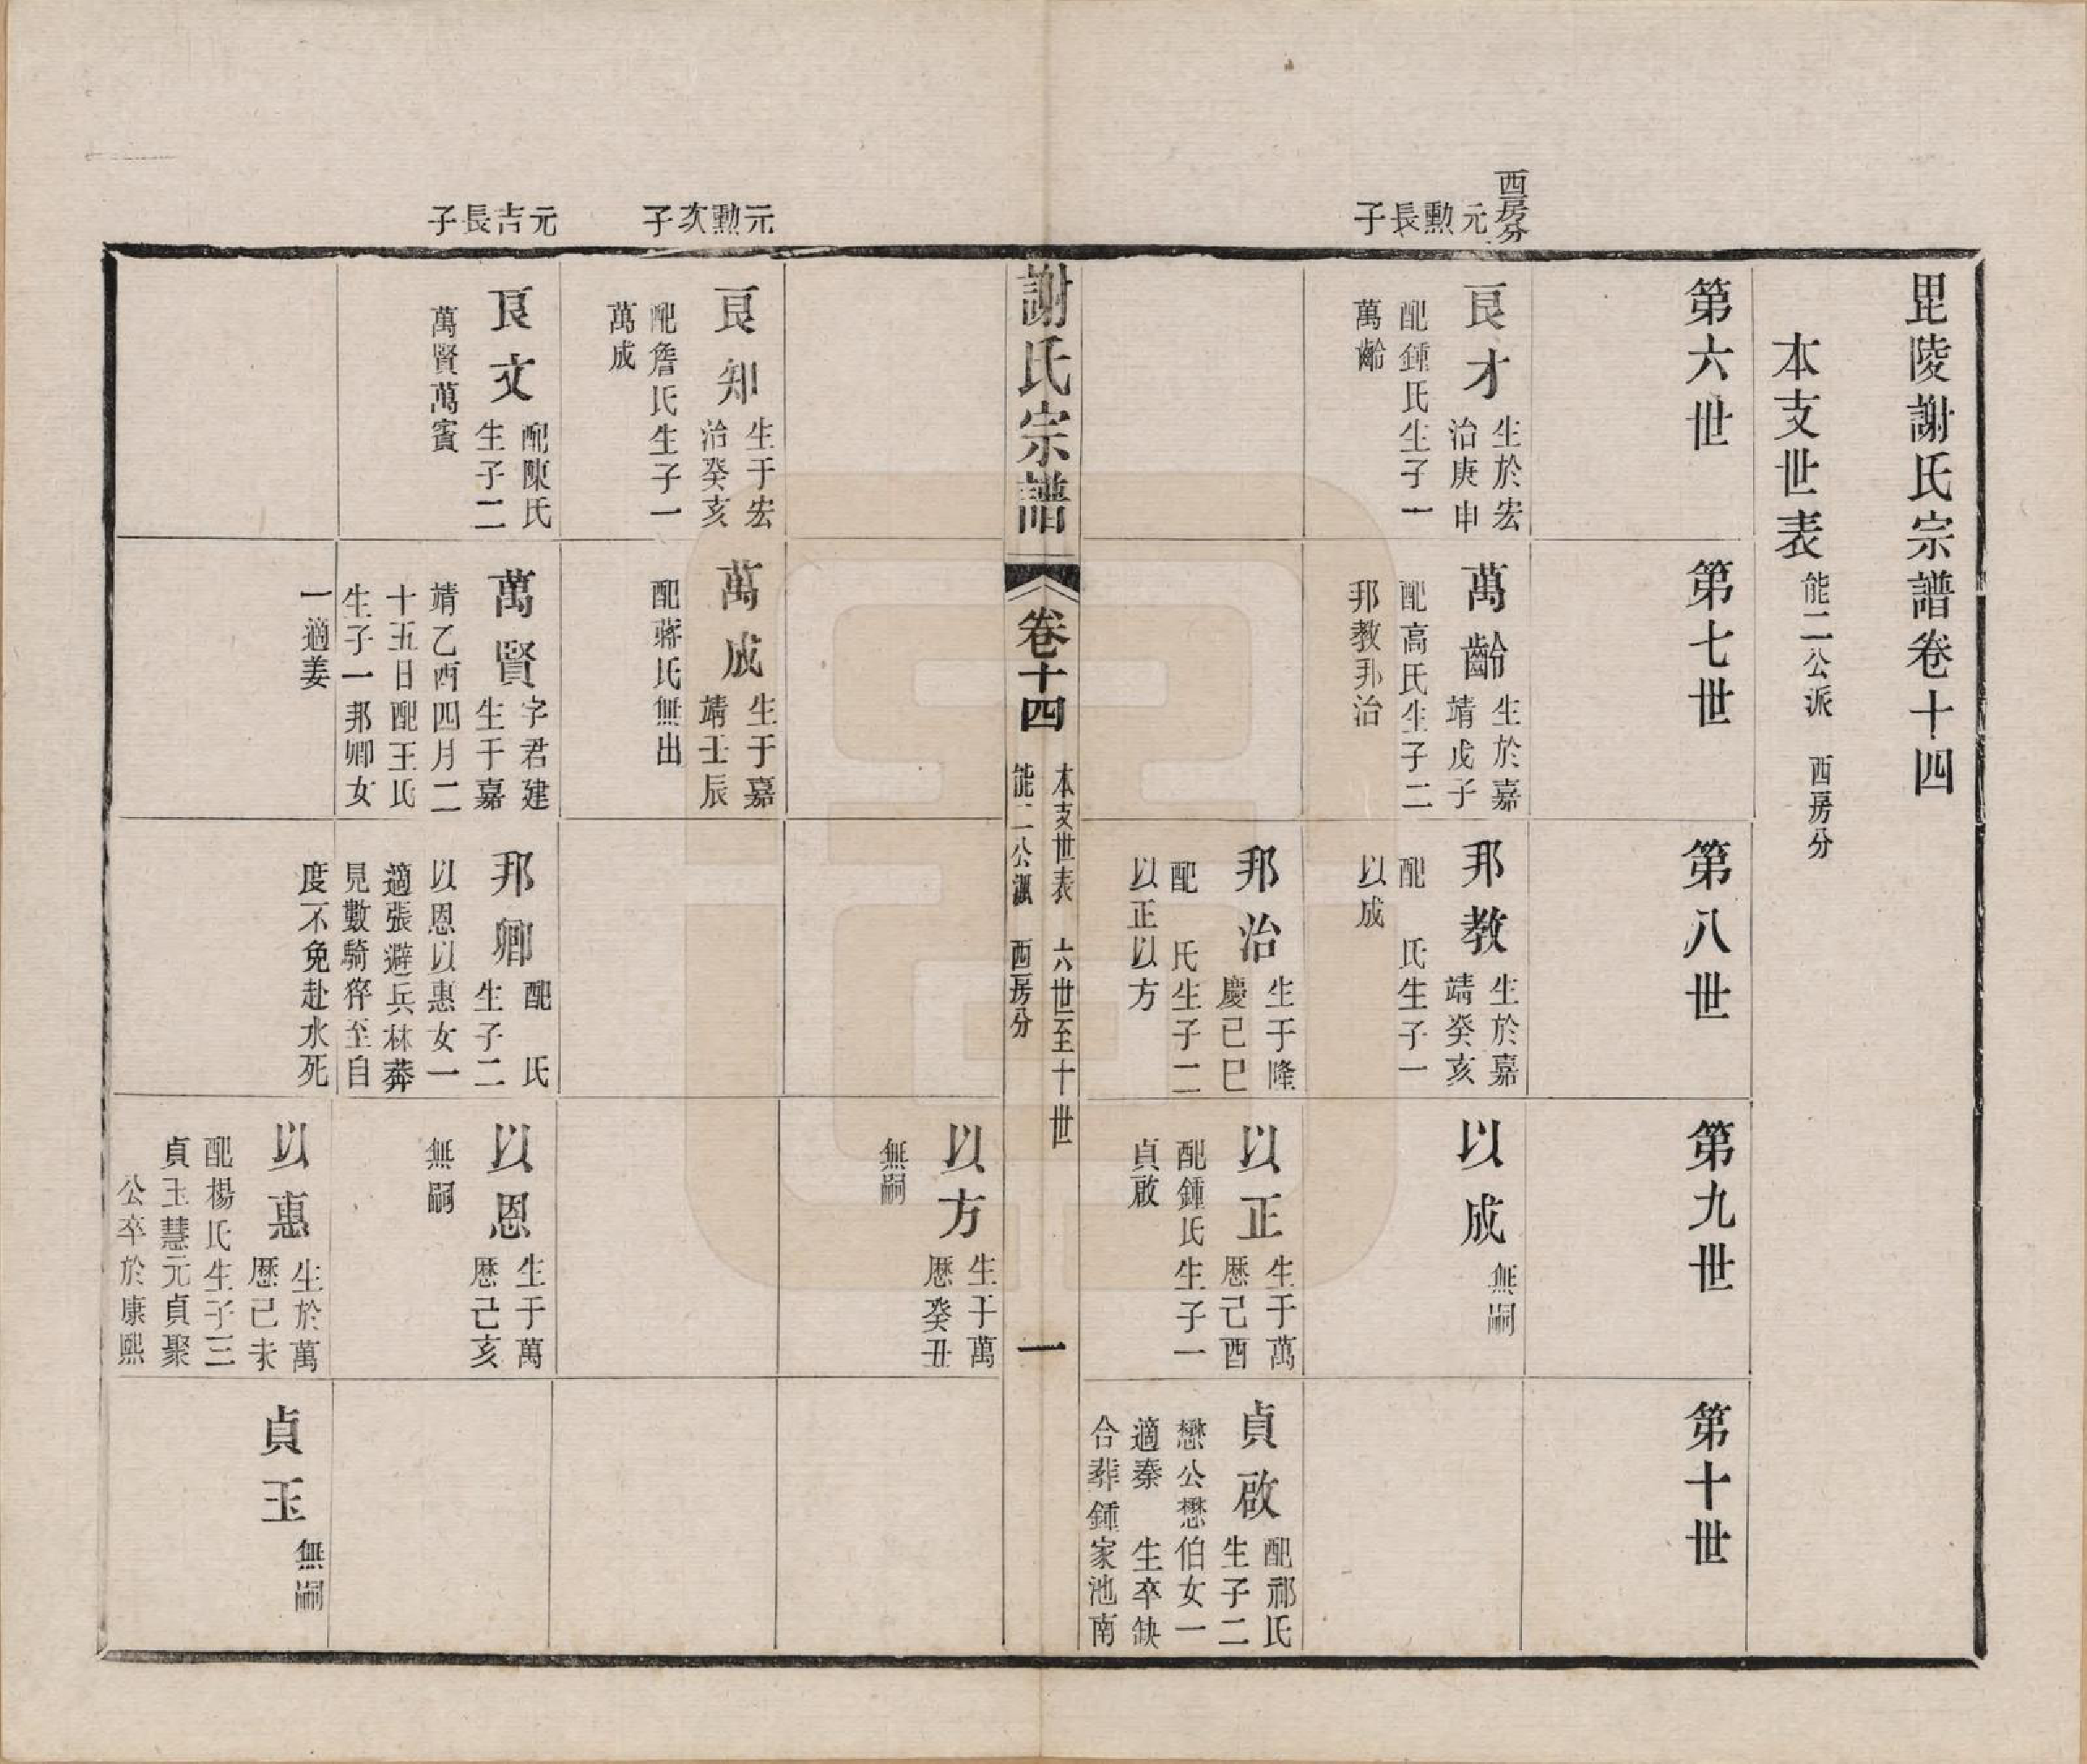 毘陵謝氏宗譜卷十四
本支世表 能二公派 西房分
第六世
第七世
第八世
第九世
第十世
西房分
元勲長子
良才 生於宏
治庚申
配鍾氏生子一
萬齡
萬齡 生於嘉
靖戊子
配高氏生子二
邦教邦治
邦教 生於嘉
靖癸亥
配 氏生子一
以成
以成 無嗣
邦治 生于隆
慶己巳
配 氏生子二
以正以方
以正 生于萬
歷己酉
配鍾氏生子一
貞啟
貞啟 配祁氏
生子二
懋公懋伯女一
適秦 生卒缺
合葬鍾家池南
謝氏宗譜
卷十四
本支世表 六世至十世
能二公派 西房分
一
以方 生于萬
歷癸丑
無嗣
元勲次子
良知 生于宏
治癸亥
配詹氏生子一
萬成
萬成 生于嘉
靖壬辰
配蔣氏無出
元吉長子
良文 配陳氏
生子二
萬賢萬賓
萬賢 字君建
生于嘉
靖乙酉四月二
十五日配王氏
生子一邦卿女
一適姜
邦卿 配 氏
生子二
以恩以惠女一
適張避兵林莽
見數騎猝至自
度不免赴水死
以恩 生于萬
歷己亥
無嗣
以惠 生於萬
歷己未
配楊氏生子三
貞玉慧元貞聚
公卒於康熙
貞玉 無嗣